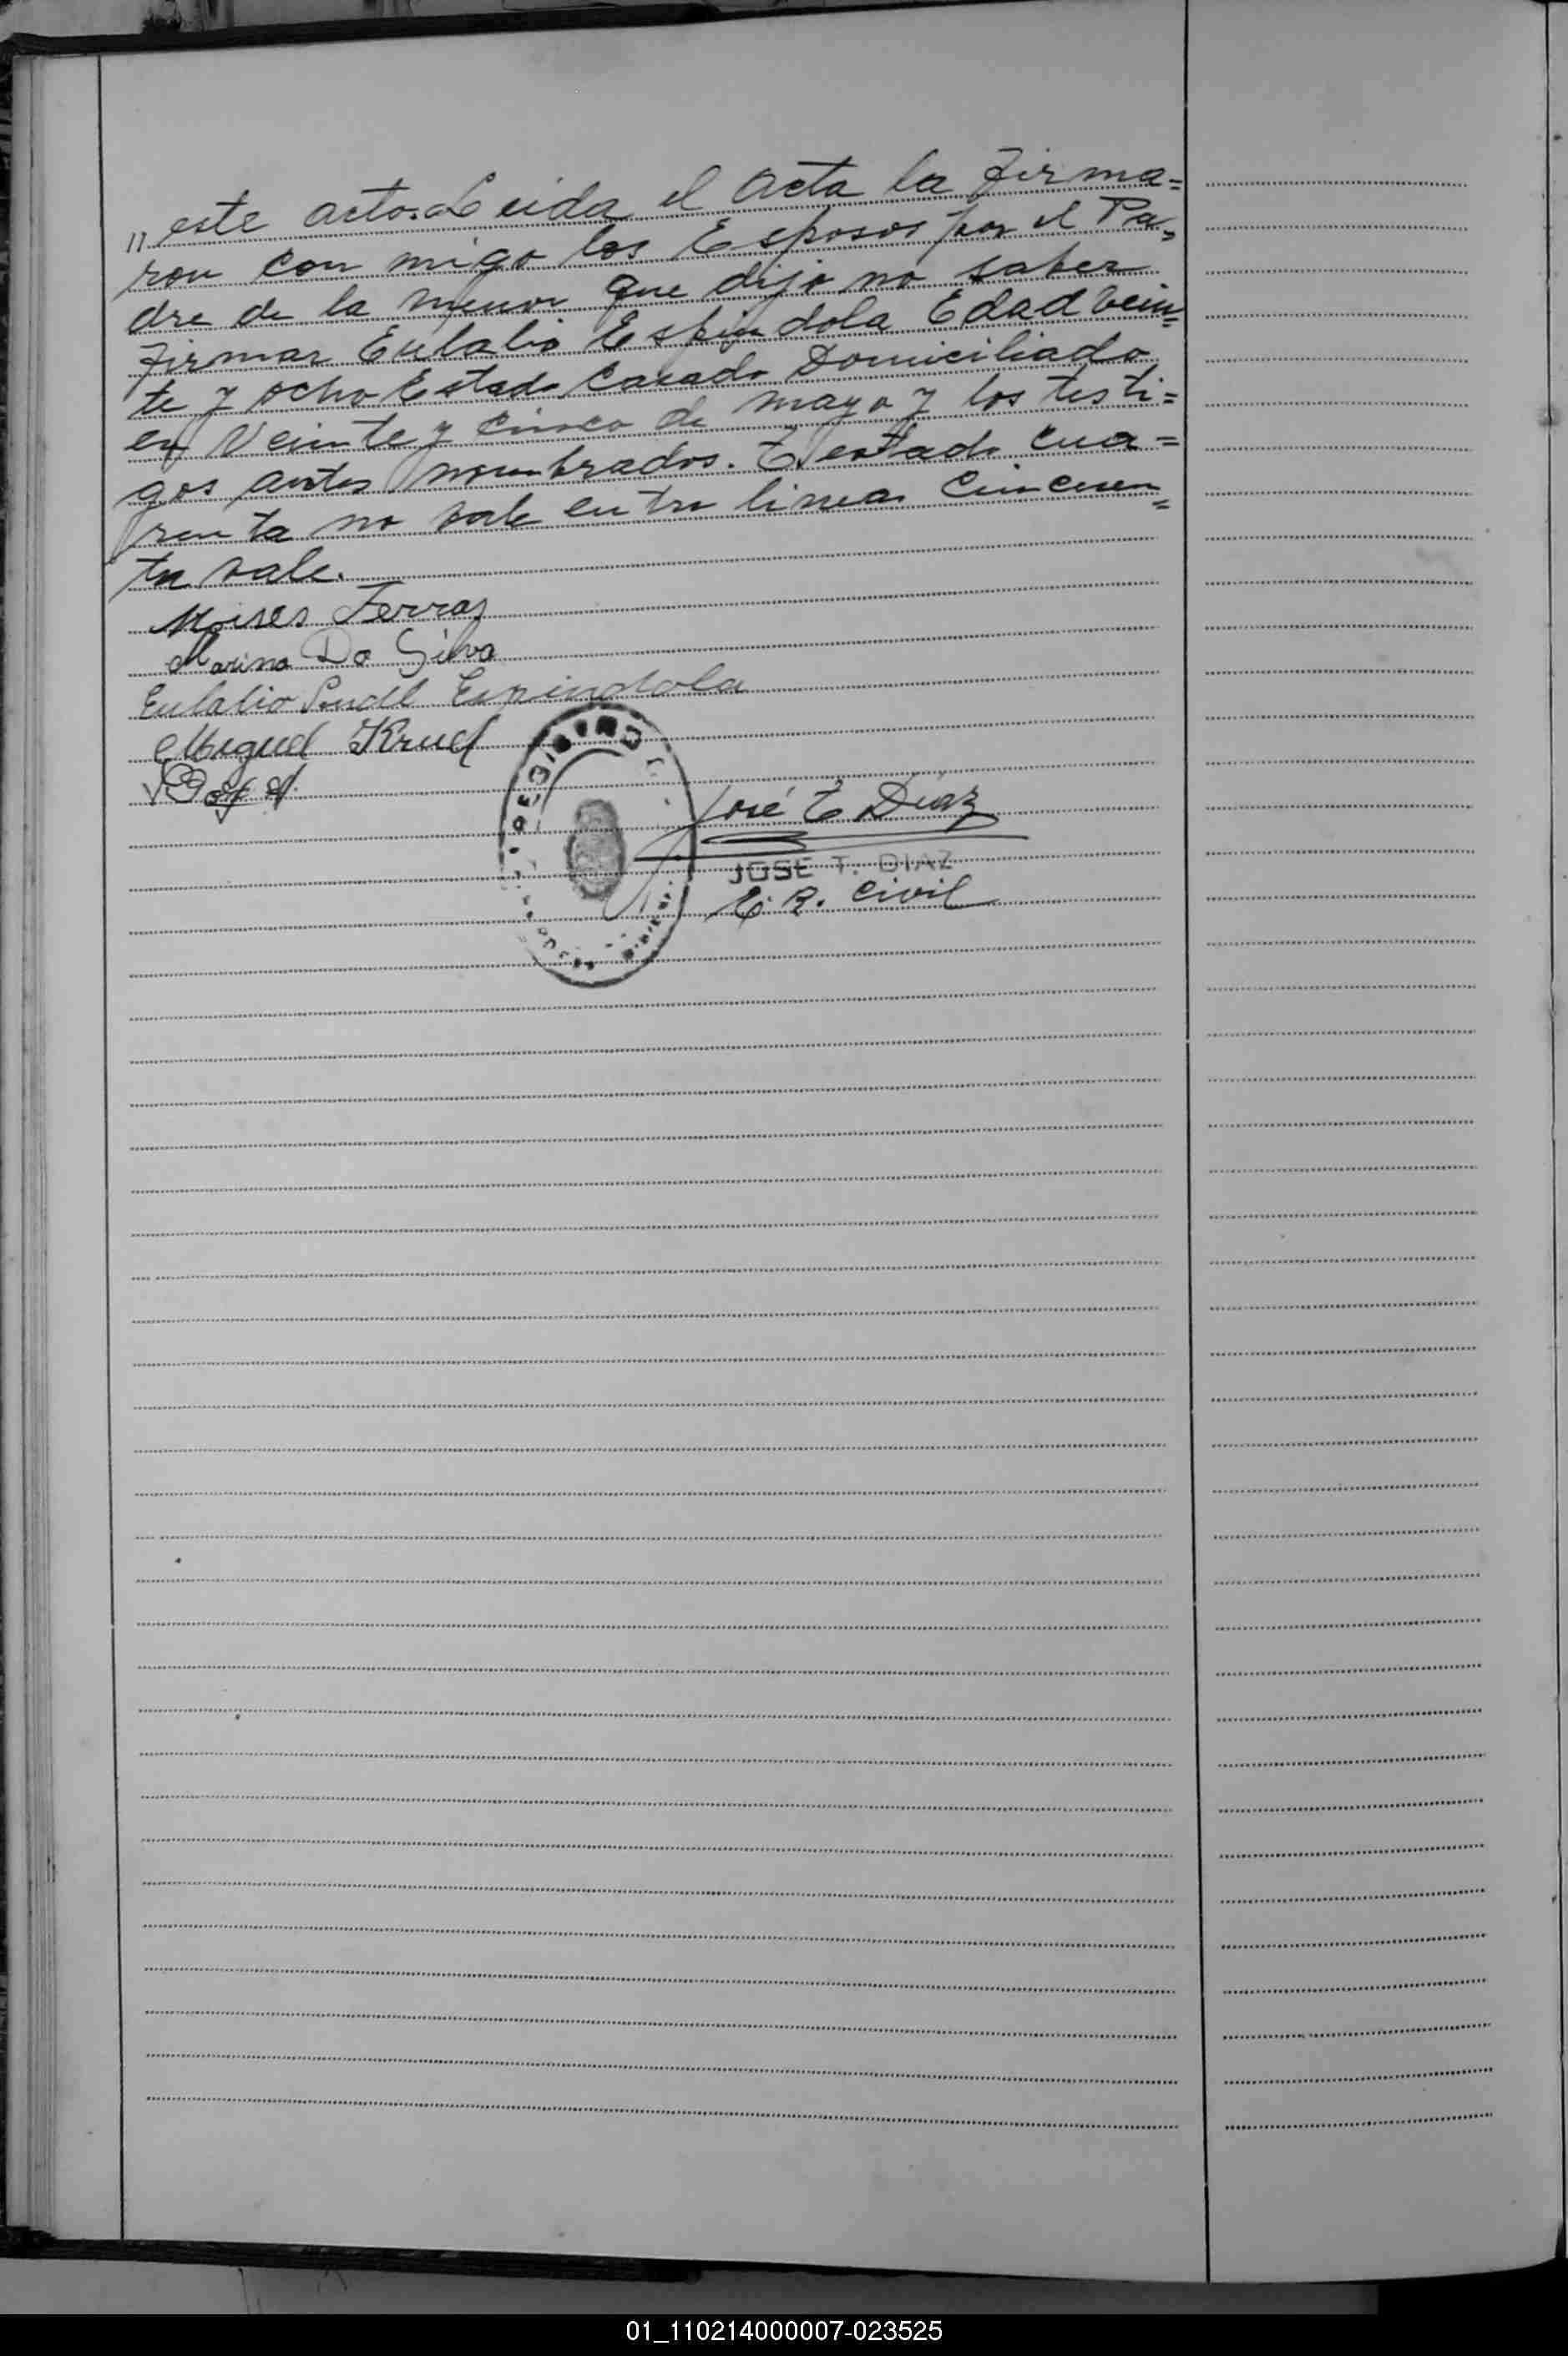 " este acto. Leida el Acta la firma=
ron con migo los Esposos por el Pa=
dre de la menor que dijo no saber
firmar Eulalio Espindola Edad Vein=
te y ocho Estado Casado Domiciliado
en Veinte y cinco de mayo y los testi=
gos antes nombrados. Testado cua=
renta no vale entre lineas cincuen=
ta vale.
Moises Ferraz
Marina Da Silva
Eulalio Espindola
Miguel Krud
José T Diaz
JOSE T. DIAZ
E. R. Civil
01_110214000007-023525